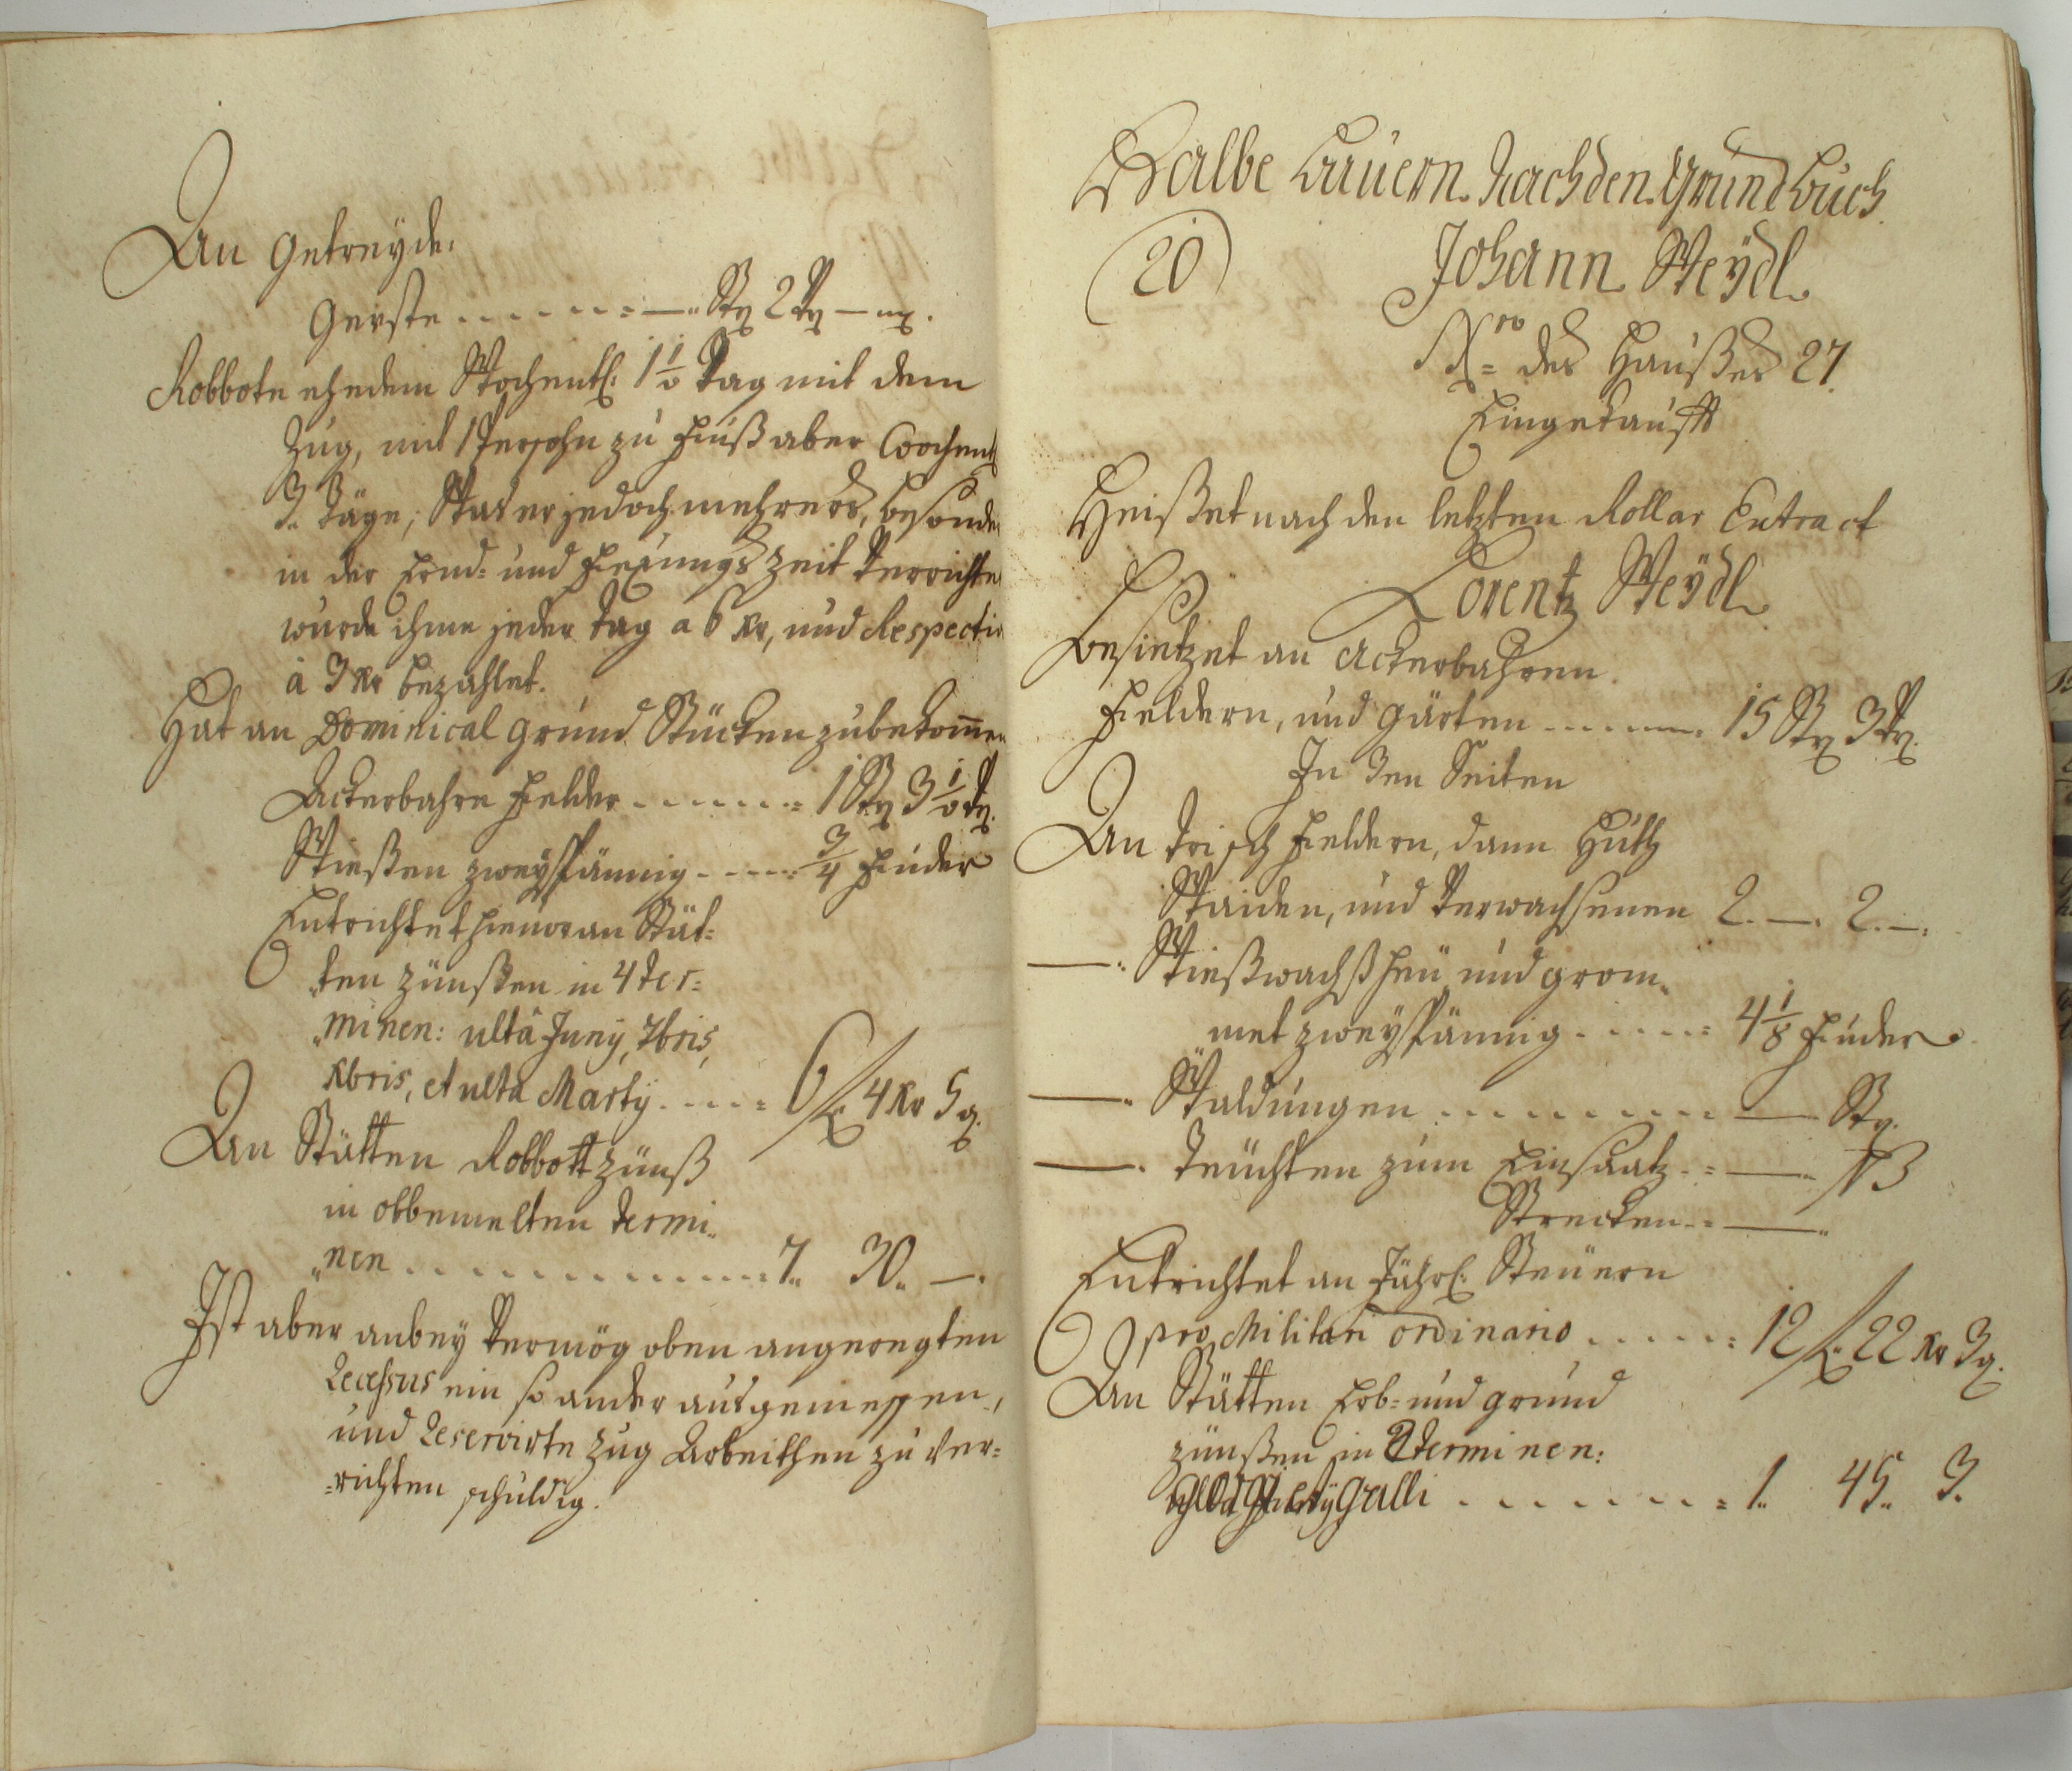 An Getreyde.
Gerste . . . . . . = — Str 2 Vrt — mx.
Robbote ehedem Wochentl: 1 1/2 Tag mit dem
Zug, mit 1 Persohn zu Fuß aber Wochentl
3. Täge, Was er jedoch mehrers, besonder
in der Ernd= und Fexungs Zeit Verrichte
wurde ihme jeder Tag a 6 Kr, und Respectiv
à 3 Kr bezahlet.
Hat an Dominical Grund Stücken zubekommen
Ackerbahre Felder . . . . . . = 1 Str 3 1/2 Vrt.
Wießen zweyspännig . . . . = 3/4 Fuder
Entrichtet hievor an Stät=
„ten Zünßen in 4 Ter=
„minen: ultâ Juny, 7bris,
Xbris, et ulta Marty . . . . = 6 f 4 Kr 5 q.
An Stätten Robbott Zünß
in obbemelten Termi„
„nen . . . . . . . . . . . . . . = 7.. 30.. —.
Ist aber anbey Vermög oben angeregten
Recessus ein so ander ausgemessen„
und Reservirte Zug Arbeithen zu Ver=
=richten schuldig.
Halbe Bauern. Nach den Grund Buch.
20
Johann Weÿdl.
Nro= des Haußes 27.
Eingekaufft
Heißet nach den letzten Rollar Extract
Lorentz Weÿdl.
Besietzet an Ackerbahren.
Fieldern, und Gärten . . . . . . = 15 Str 3 Vrt.
In 3en Seiten
An Trisch Fieldern, dann Huth
Waiden, und Verwachsenen 2. —. 2. —.
—. Wießwachß Heu und Grom„
„met zweyspännig . . . . . = 4 1/8 Fuder.
—. Waldungen . . . . . . . . . — Str.
—. Teüchten zum Einsaatz . . = — ß
Strecken . . = —
Entrichtet an Jährl: Steuern
pro Militari ordinario . . . . . . = 12 f 22 Kr 3 q.
An Stätten Erb= und Grund
Zünßen in 2 Terminen:
Galli . . . . . . . . . = 1.. 45.. 3.